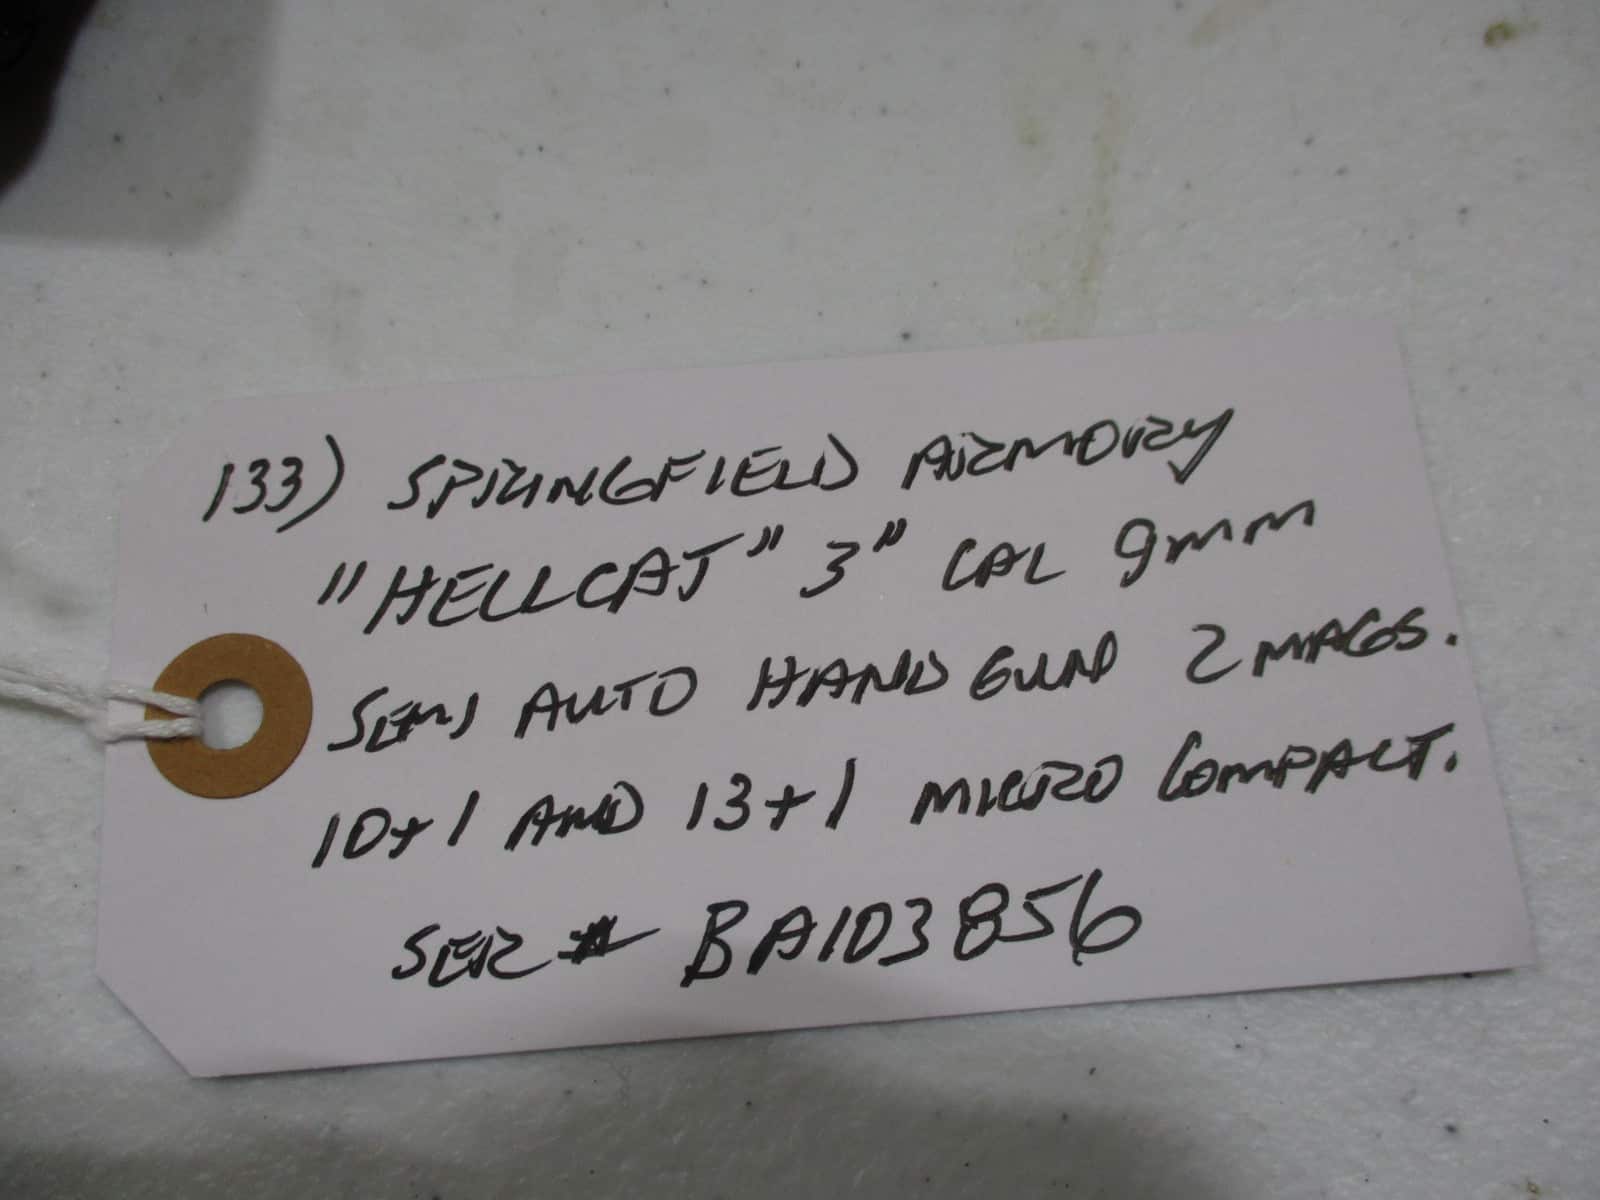 133) SPRINGFIELD ARMORY
"HELLCAT" 3" CAL 9mm
SEMI AUTO HAND GUN 2 MAGS.
10+1 AND 13+1 MICRO COMPACT.
SER # BA103856